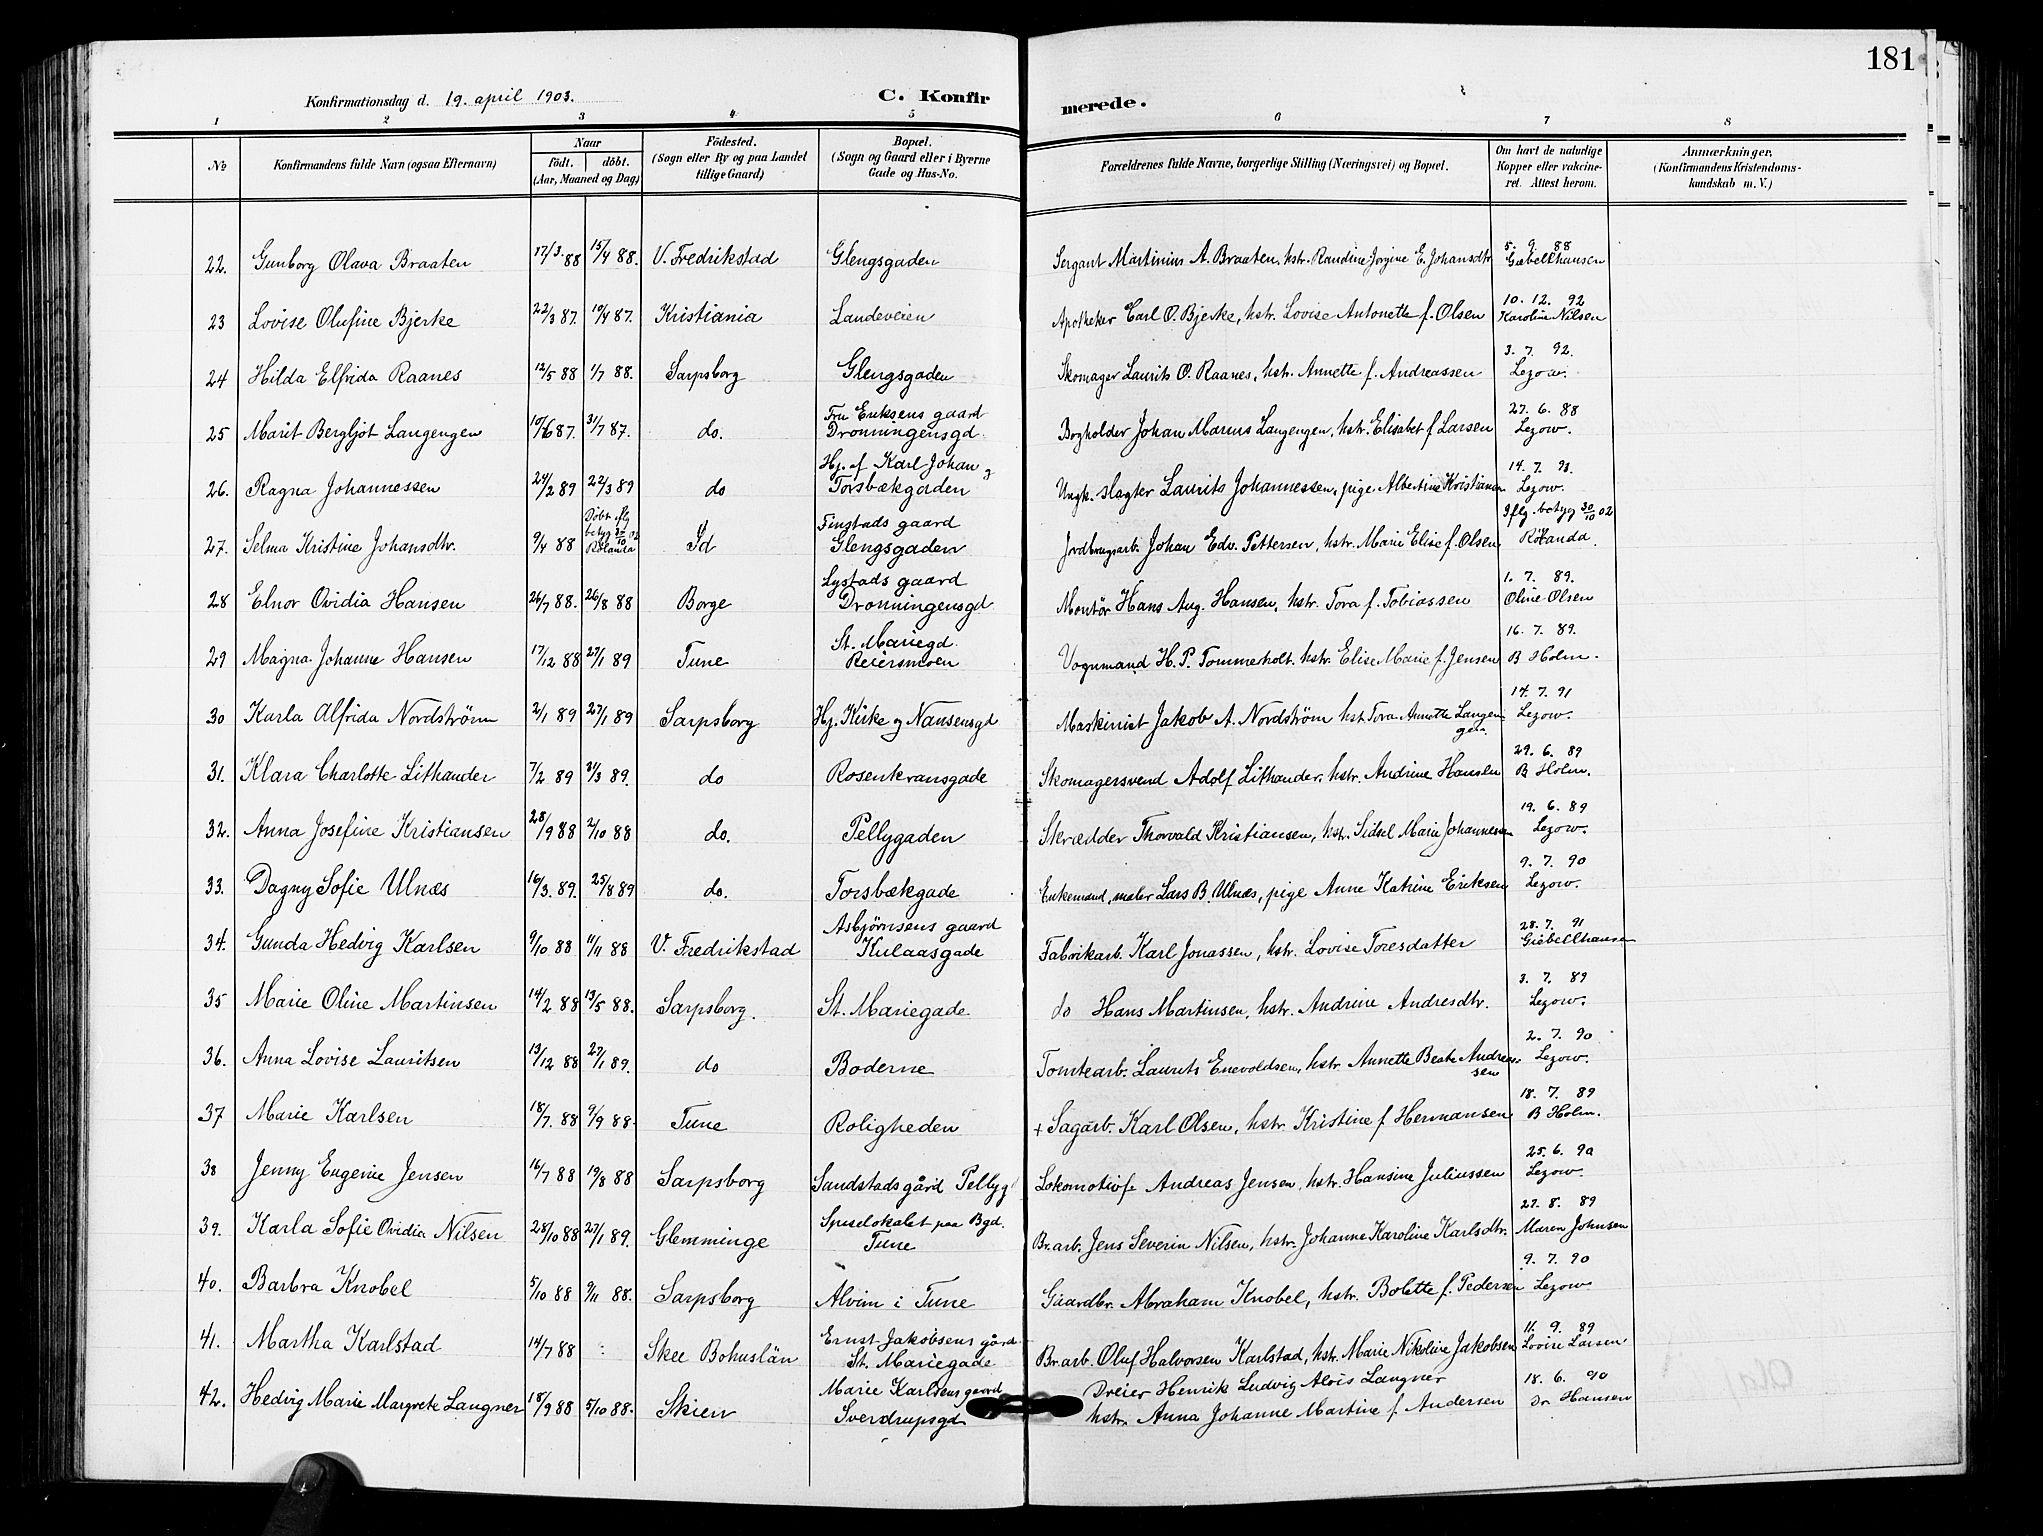 181
Konfirmationsdag d. 19. april 1903.
C. Konfir
merede.
1 2 3 4 5 6 7 8
No
Konfirmandens fulde Navn (ogsaa Efternavn)
Naar
födt. döbt.
(Aar, Maaned og Dag)
Födested.
(Sogn eller By og paa Landet
tillige Gaard)
Bopæl.
(Sogn og Gaard eller i Byerne
Gade og Hus-No.
Forældrenes fulde Navne, borgerlige Stilling (Næringsvei) og Bopæl.
Om havt de naturlige
Kopper eller vakcine-
ret. Attest herom.
Anmærkninger,
(Konfirmandens Kristendoms-
kundskab m. V.)
5. 9. 88
22. Gunborg Olava Braaten 17/3 88 15/4 88. V. Fredrikstad Glengsgaden Sergant Martinius A. Braaten, hstr. Randine Jørgine E. Johansdtr Giebelhausen
10. 12. 92
23 Lovise Olufine Bjerke 22/3 87. 10/4 87. Kristiania Landeveien Apotheker Carl O. Bjerke, hstr. Lovise Antonette f. Olsen Karoline Nilsen
3. 7. 92.
24 Hilda Elfrida Raanes 12/5 88 1/7 88. Sarpsborg Glengsgaden Skomager Laurits O. Raanes, hstr. Annette f. Andreassen Lezow.
Fru Eriksens gaard 27. 6. 88
25 Marit Bergljot Langengen 10/6 87. 31/7 87. do. Dronningensgd. Bogholder Johan Marius Langengen, hstr. Elisabet f Larsen Lezow.
Hj. af Karl Johan og 14. 7. 93.
26. Ragna Johannessen 24/2 89 22/3 89 do Torsbækgaden Ungk. slagter Laurits Johannessen, pige Albertine Kristiansen Lezow.
Døbt iflg betyg 30/10 02 Finstads gaard Iflg. betyg 30/10 02
27. Selma Kristine Johansdtr. 9/4 88 Rölanda Id Glengsgaden Jordbrugsarb. Johan Edv. Pettersen, hstr. Marie Elise f. Olsen Rölanda.
Lystads gaard 1. 7. 89.
28 Elnor Ovidia Hansen 26/7 88. 26/8 88 Borge Dronningensgd Montör Hans Aug. Hansen, hstr. Tora f. Tobiassen Oline Olsen
St. Mariegd. 16. 7. 89.
29 Magna Johanne Hansen 17/12 88 27/1 89 Tune Reiersmoen Vognmand H. P. Tommeholt. hstr. Elise Marie f. Jensen B Holm.
14. 7. 91
30 Karla Alfrida Nordstrøm 2/1 89 27/1 89 Sarpsborg Hj. Kirke og Nansensgd Maskinist Jakob A. Nordstrøm hst. Tora Annette Langengen. Lezow.
29. 6. 89
31. Klara Charlotte Lithander 7/2 89 31/3 89. do Rosenkransgade Skomagersvend Adolf Lithander, hstr. Andrine Hansen B Holm.
19. 6. 89
32. Anna Josefine Kristiansen 28/9 88 2/10 88 do. Pellygaden Skrædder Thorvald Kristiansen, hstr. Sidsel Marie Johannessen Lezow.
9. 7. 90
33. Dagny Sofie Ulnæs 16/3. 89. 25/8 89 do. Torsbækgade Enkemand, maler Lars B. Ulnæs, pige Anne Katrine Eriksen Lezow.
Asbjørnsens gaard 28. 7. 91
34. Gunda Hedvig Karlsen 9/10 88 11/11 88 V. Fredrikstad Kulaasgade Fabrikarb. Karl Jonassen, hstr. Lovise Toresdatter Giebellhausen
3. 7. 89
35 Marie Oline Martinsen 14/2 88 13/5 88. Sarpsborg. St. Mariegade do Hans Martinsen, hstr. Andrine Andresdtr. Lezow.
2. 7. 90
36. Anna Lovise Lauritsen 13/12 88 27/1 89. do Boderne Tomtearb. Laurits Enevoldsen, hstr. Annette Beate Andreassen Lezow.
18. 7. 89
37 Marie Karlsen 18/7. 88 9/9 88. Tune Roligheden + Sagarb. Karl Olsen, hstr. Kristine f Hermansen B Holm.
25. 6. 90
38 Jenny Eugenie Jensen 16/7 88 19/8 88 Sarpsborg Sandstads gård Pellyg Lokomotivf. Andreas Jensen, hstr. Hansine Juliussen Lezow.
Spiselokalet paa Bgd. 27. 8. 89
39. Karla Sofie Ovidia Nilsen 28/10 88 27/1 89. Glemminge Tune Br.arb. Jens Severin Nilsen, hstr. Johanne Karoline Karlsdtr. Maren Johnsen
9. 7. 90
40. Barbra Knobel 5/10 88 9/11 88. Sarpsborg Alvim i Tune Gaardbr. Abraham Knobel, hstr. Bolette f. Pedersen Lezow.
Ernst Jakobsens gård 11. 9. 89
41. Martha Karlstad 14/7 88 Skee Bohuslän St. Mariegade Br.arb. Oluf Halvorsen Karlstad, hstr. Marie Nikoline Jakobsen Lovise Larsen
Marie Karlsens gaard Dreier Henrik Ludvig Alois Langner 18. 6. 90
42. Hedvig Marie Margrete Langner 18/9 88 5/10 88. Skien Sverdrupsgd hstr. Anna Johanne Martine f. Andersen Dr Hansen